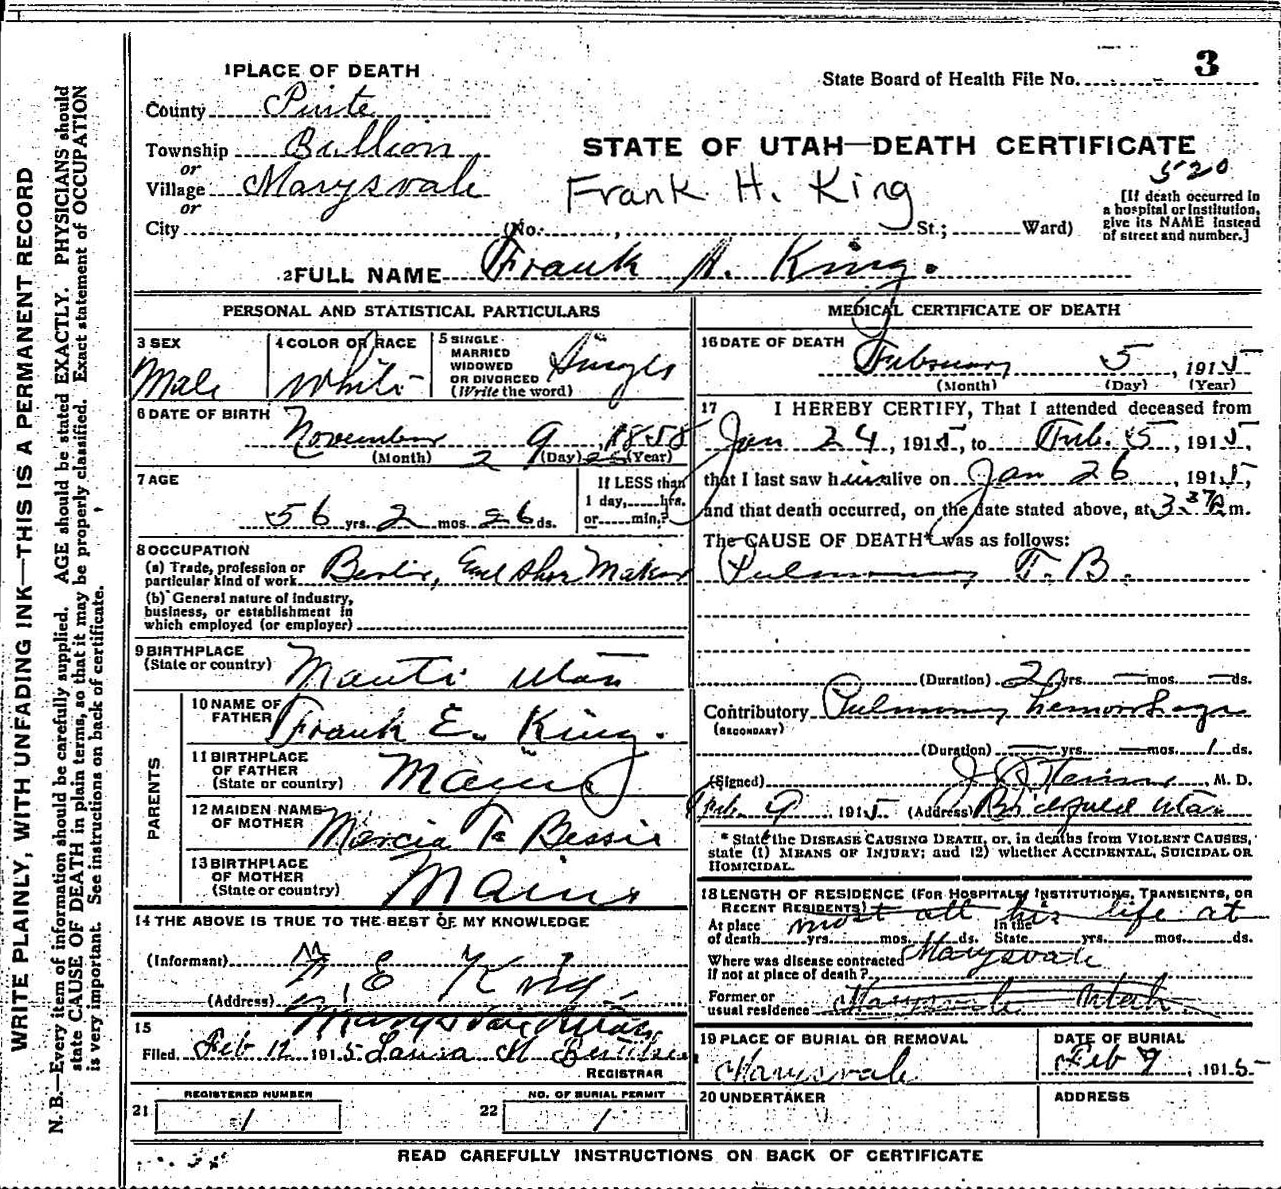 3
1 PLACE OF DEATH
State Board of Health File No.
County Piute
STATE OF UTAH—DEATH CERTIFICATE
Township Bullion
or
520
Village Marysvale
Frank H. King
or
City (No. , St.; Ward)
[If death occurred in
a hospital or institution,
give its NAME instead
of street and number.]
2 FULL NAME Frank H. King.
PERSONAL AND STATISTICAL PARTICULARS
3 SEX
Male
4 COLOR OR RACE
White
5 SINGLE
MARRIED
WIDOWED
OR DIVORCED
(Write the word)
Single
6 DATE OF BIRTH
November 9, 1858
(Month) (Day) (Year)
7 AGE
56 yrs. 2 mos. 26 ds.
If LESS than
1 day, hrs.
or min.?
8 OCCUPATION
(a) Trade, profession or
particular kind of work Maker
(b) General nature of industry,
business, or establishment in
which employed (or employer)
9 BIRTHPLACE
(State or country) Manti Utah
PARENTS
10 NAME OF
FATHER Frank E. King.
11 BIRTHPLACE
OF FATHER
(State or country) Maine
12 MAIDEN NAME
OF MOTHER Marcia Bessie
13 BIRTHPLACE
OF MOTHER
(State or country) Maine
14 THE ABOVE IS TRUE TO THE BEST OF MY KNOWLEDGE
(Informant) E King
(Address) Marysvale Utah
15
Filed Feb 12 1915 Laura M
REGISTRAR
REGISTERED NUMBER
21 1
NO. OF BURIAL PERMIT
22 1
MEDICAL CERTIFICATE OF DEATH
16 DATE OF DEATH
February 5, 1915
(Month) (Day) (Year)
17 I HEREBY CERTIFY, That I attended deceased from
Jan 24, 1915, to Feb. 5, 1915,
that I last saw him alive on Jan 26, 1915,
and that death occurred, on the date stated above, at 3 37 A m.
The CAUSE OF DEATH* was as follows:
Pulmonary T. B.
(Duration) 20 yrs. — mos. — ds.
Contributory Pulmonary hemorrhage
(SECONDARY)
(Duration) — yrs. — mos. 1 ds.
(Signed) M. D.
Feb. 9 1915 (Address) Utah
* State the DISEASE CAUSING DEATH, or, in deaths from VIOLENT CAUSES,
state (1) MEANS OF INJURY; and (2) whether ACCIDENTAL, SUICIDAL OR
HOMICIDAL.
18 LENGTH OF RESIDENCE (FOR HOSPITALS, INSTITUTIONS, TRANSIENTS, OR
RECENT RESIDENTS) most all his life at
At place In the
of death yrs. mos. ds. State yrs. mos. ds.
Where was disease contracted Marysvale
if not at place of death?
Former or
usual residence Marysvale Utah
19 PLACE OF BURIAL OR REMOVAL
Marysvale
DATE OF BURIAL
Feb 7, 1915
20 UNDERTAKER
ADDRESS
READ CAREFULLY INSTRUCTIONS ON BACK OF CERTIFICATE
WRITE PLAINLY, WITH UNFADING INK—THIS IS A PERMANENT RECORD
N. B.—Every item of information should be carefully supplied. AGE should be stated EXACTLY. PHYSICIANS should
state CAUSE OF DEATH in plain terms, so that it may be properly classified. Exact statement of OCCUPATION
is very important. See instructions on back of certificate.